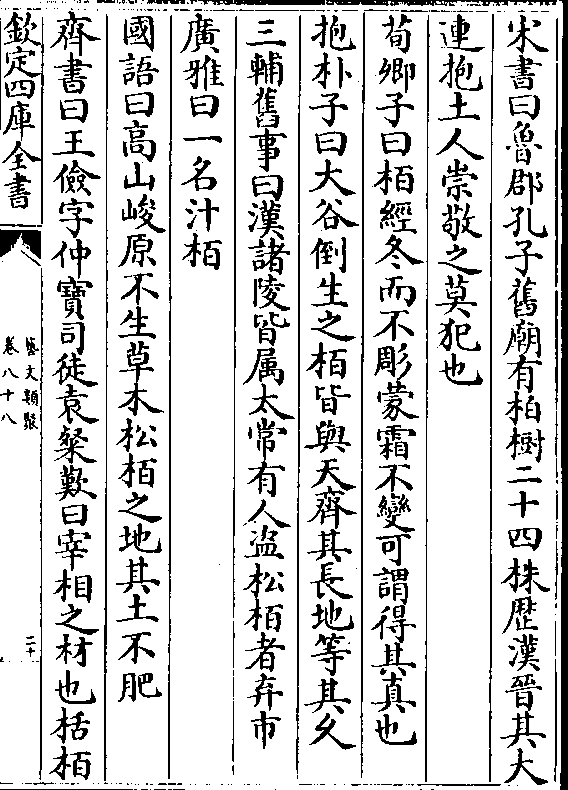 宋書曰魯郡孔子舊廟有柏樹二十四株歴漢晉其大
連抱土人崇敬之莫犯也
荀卿子曰栢經冬而不彫蒙霜不變可謂得其真也
抱朴子曰大谷倒生之栢皆與天齊其長地等其久
三輔舊事曰漢諸陵皆属太常有人盗松栢者弃市
廣雅曰一名汁栢
國語曰高山峻原不生草木松栢之地其土不肥
齊書曰王儉字仲寶司徒袁粲歎曰宰相之材也栝栢
欽定四庫全書
藝文類聚
卷八十八
二十